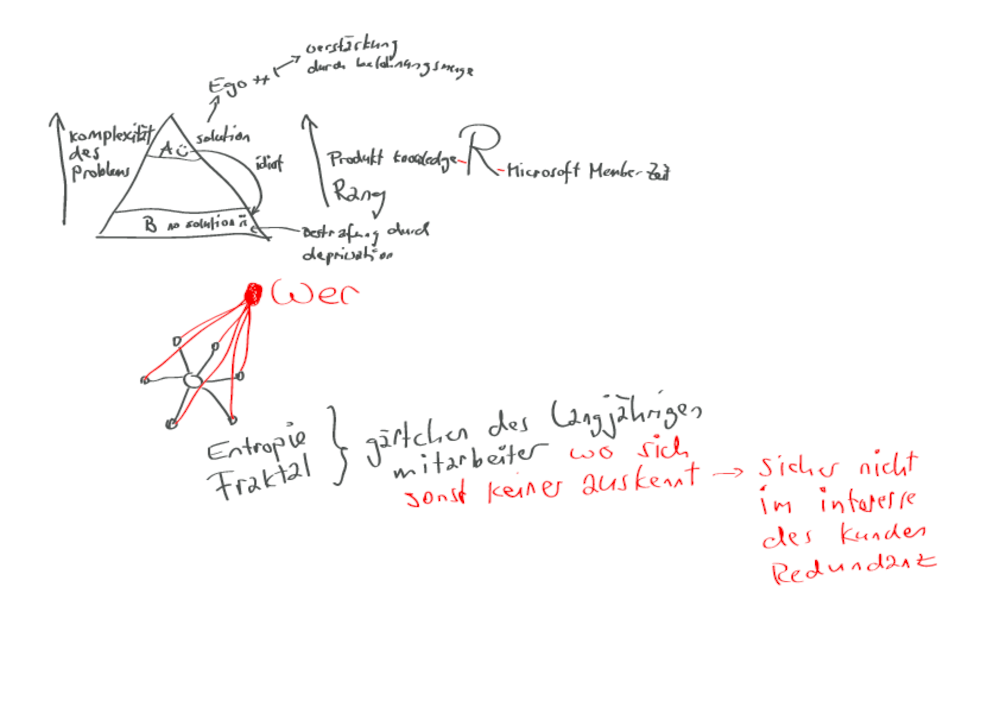 verstärkung
durch belohnungsmenge
Ego ++
komplexität
des
Problems
A
solution
idiot
B no solution
Bestrafung durch
deprivation
Produkt knowledge - R - Microsoft Member Zeit
Rang
Wer
Entropie
Fraktal
gärtchen des langjährigen
mitarbeiter wo sich
sonst keiner auskennt → sicher nicht
im interesse
des kunden
Redundanz